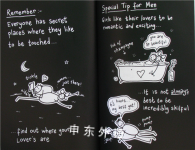 Remember :-
Everyone has secret
places where they like
to be touched....
find out where your
lover's are
Special Tip for Men
Girls like their lovers to be
romantic and inventive.....
you are
so beautiful
It is not always
best to be
incredibly skilful
申东外福